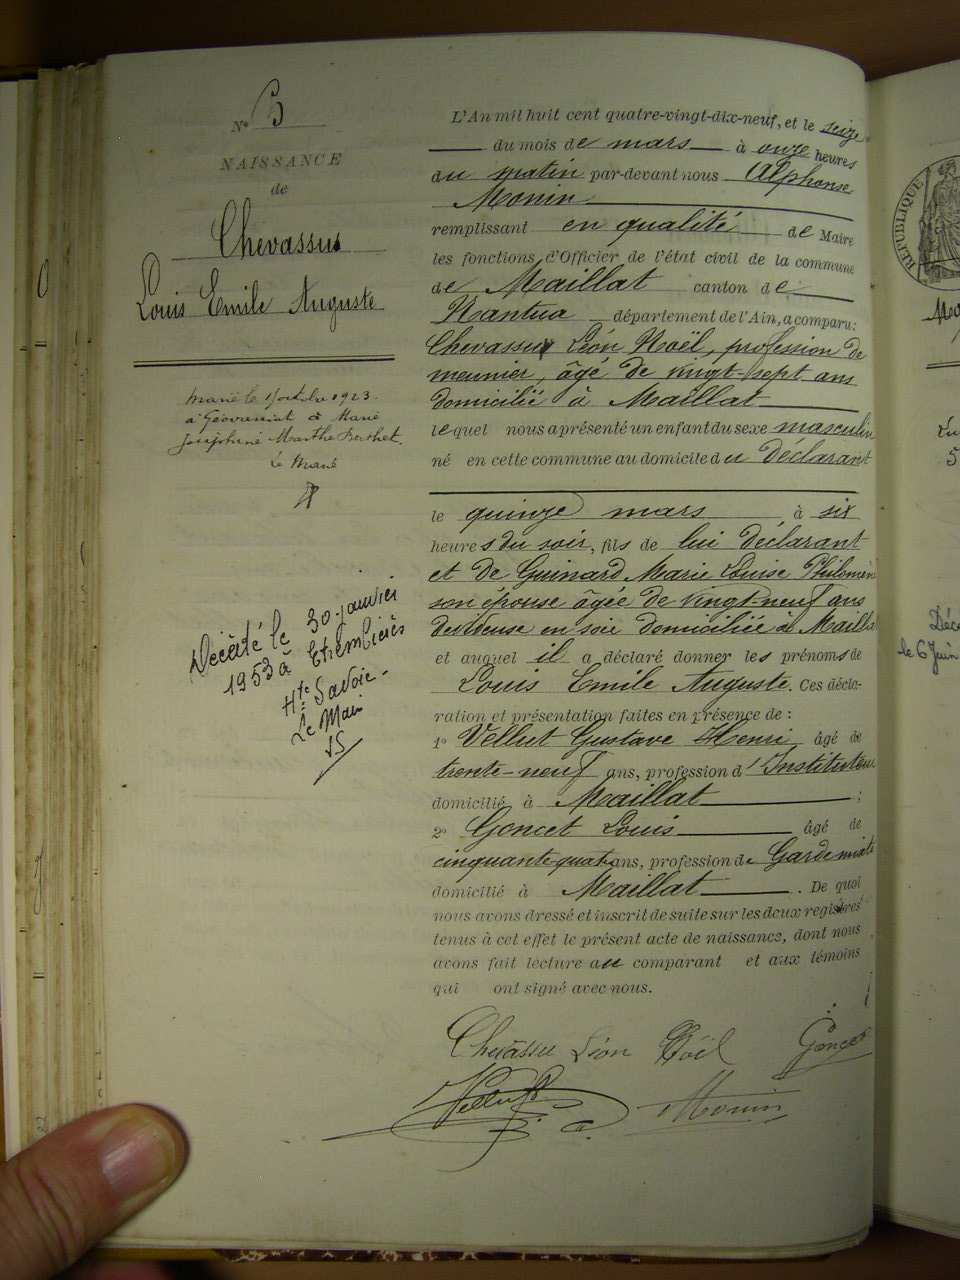 N° 3
NAISSANCE
de
Chevassus
Louis Emile Auguste
Marié le 1 octobre 1923
à Géovreissiat à Marie
Joséphine Marthe Berthet
Le Maire
Décédé le 30 janvier
1953 à Etrembières
Hte Savoie -
Le Maire
L'An mil huit cent quatre-vingt-dix-neuf, et le seize
du mois de mars à onze heures
du matin par-devant nous Alphonse
Monin
remplissant en qualité de Maire
les fonctions d'Officier de l'état civil de la commune
de Maillat canton de
Nantua département de l'Ain, a comparu:
Chevassus Léon Noël, profession de
meunier, âgé de vingt-sept ans
domicilié à Maillat
lequel nous a présenté un enfant du sexe masculin
né en cette commune au domicile du déclarant
le quinze mars à six
heures du soir, fils de lui déclarant
et de Guinard Marie Louise Philomène
son épouse âgée de vingt-neuf ans
dévideuse en soie domiciliée à Maillat
et auquel il a déclaré donner les prénoms de
Louis Emile Auguste. Ces décla-
ration et présentation faites en présence de :
1° Vellut Gustave Henri âgé de
trente-neuf ans, profession d'Instituteur
domicilié à Maillat ;
2° Goncet Louis âgé de
cinquante-quatre ans, profession de Garde mixte
domicilié à Maillat. De quoi
nous avons dressé et inscrit de suite sur les deux registres
tenus à cet effet le présent acte de naissance, dont nous
avons fait lecture au comparant et aux témoins
qui ont signé avec nous.
Chevassu Léon Noël Goncet
Vellut Monin
RÉPUBLIQUE
Décé
le 6 Juin